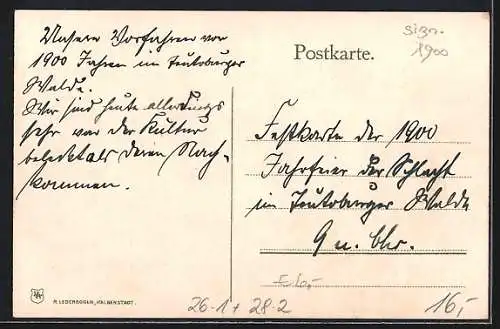 Unsere Vorfahren vor
1900 Jahren im Teutoburger
Walde.
Wir sind heute allerdings
sehr von der Kultur
beleckt als deren Nach-
kommen.
Postkarte.
1900
Festkarte der 1900
Jahrfeier der Schlacht
im Teutoburger Walde
9 n. Chr.
R. LEDERBOGEN, HALBERSTADT.
26-1 + 28-2
16,-